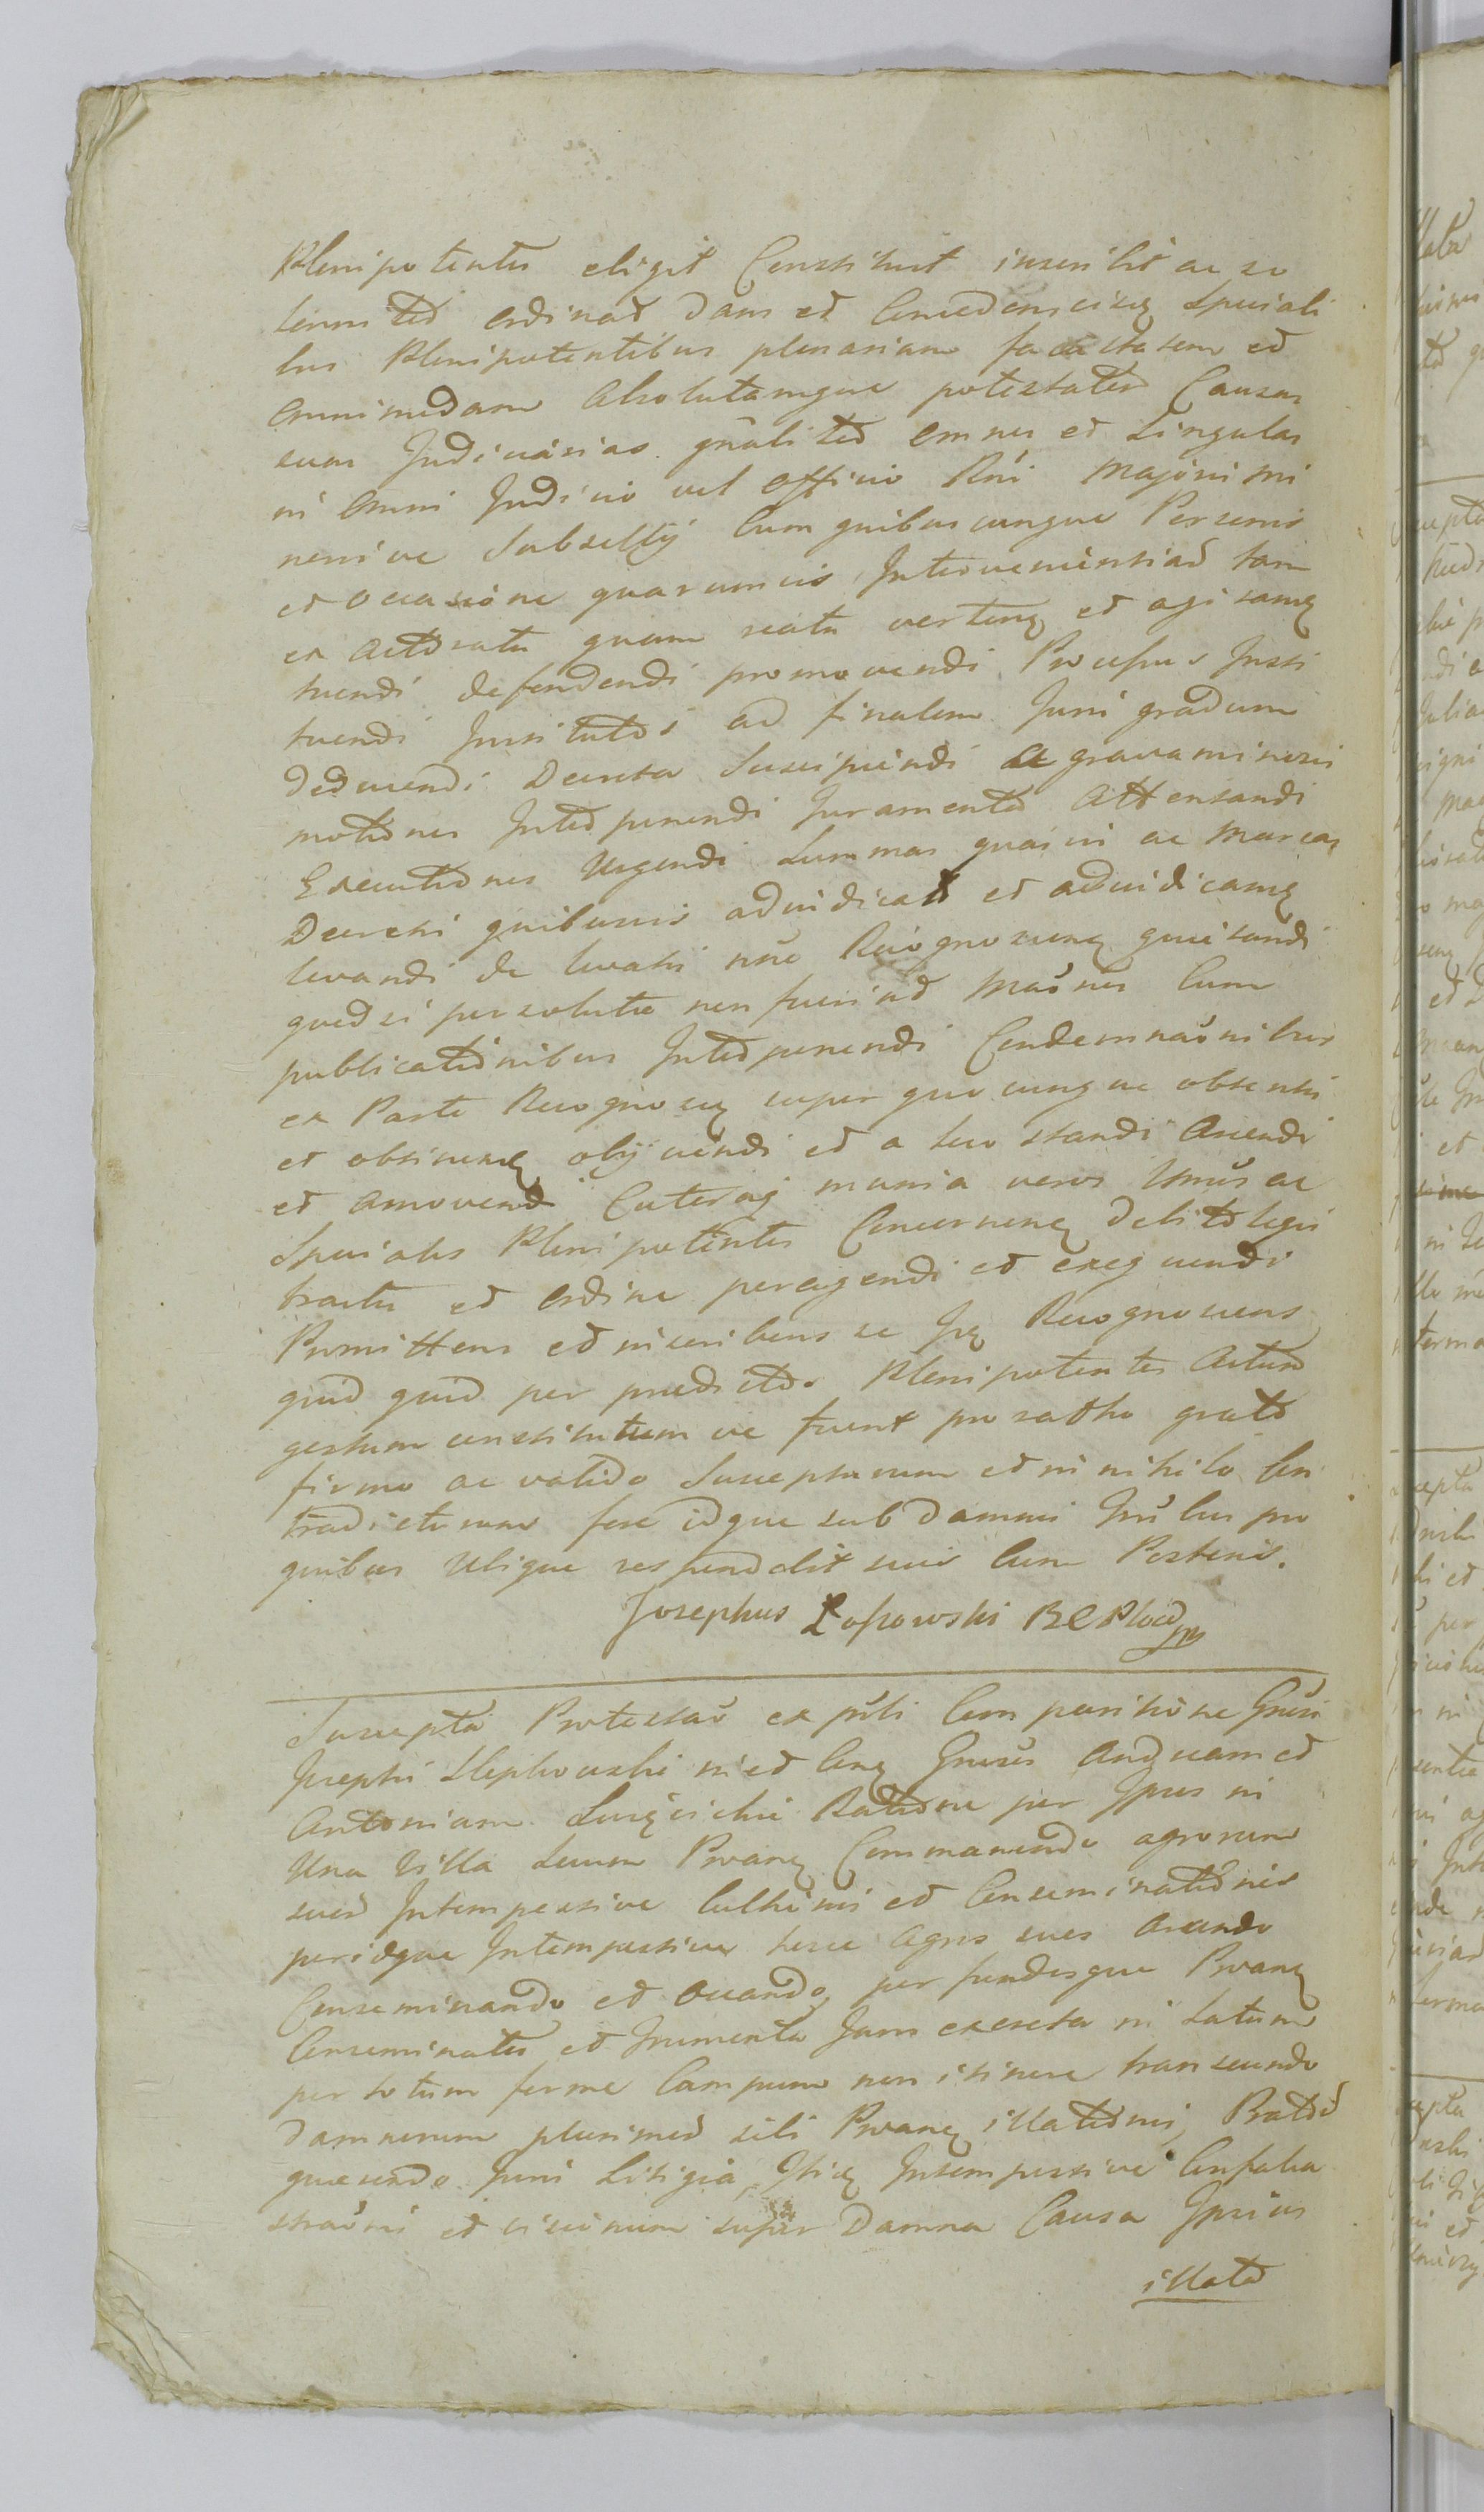 Plenipotentes eligit Constituit inscribit ac so
lennited ordinad Dans et Concedens eisq Speciali
bus Plenipotentibus plenariam facultatem ed
omnimodam absolutamque potestatem Causas
suas Judiciarias gñalited omnes et Singulas
in omni Judicio vel officio Rni Majoris mi
norisve Subsellÿ Cum quibuscunque Personis
et occasione quarumvis Intervenientiad tam
ex actoratu quam reatu vertenq et agitanq
tuendi defendendi promovendi Processus Insti
tuendi Institutos ad finalem Juris gradum
deducendi Decreta Suscipiendi a gravaminosis
motiones Interponendi Juramenta Attentandi
Executiones Urgendi Summas quasvis ac Marcas
Decretis quibusvis adjudicatas et adjudicanq
levandi de levatis noe Recognoscenq quietandi
quod si persolutae non fuerind Maônes Cum
publicationibus Interponendi Condemnaônibus
ex Parte Recognoscen super quocunque obtentis
et obtinenq obÿciendi ed a loco standi Arcendi
et amovendi Caeteraq munia veros Umûs ac
Speciales Plenipotentes Concernenq Debito legis
tractu et ordine peragendi et exequendi
Promittens ed inscribens se Ipe Recognoscens
quid quid per praedictos Plenipotentes Actum
gestum constitutum ve fuerit pro ratho grato
firmo ac valido Suscepturum ed in nihilo Con
tradicturum fore idque sub Damnis Trrîbus pro
quibus Ubique respondebit suis cum Posteris.
Josephus Łopowski
Suscepta Protestaô ex prîti Comparitione Gnesi
Josephi Steptowski in ed Conq Gnesos Andream ed
Antoniam Ratione per Ipsos in
Una Villa Secum Proanq Commanendo agrorum
suord Intempestive Cultionis ed Conseminationis
peridque Intempestive hosce agros suos Arando
Conseminando ed Occando, per fundosque Proanq
Conseminatos ed frumenta Jam excreta in Satum
per totum ferme Campum non itinere transeundo
Damnorum plurimord sibi Proanq illationis,
quaerendo Juris Litigia, Itiq Intempestive
ed vicinum super Damna Causa Ipsius
illata